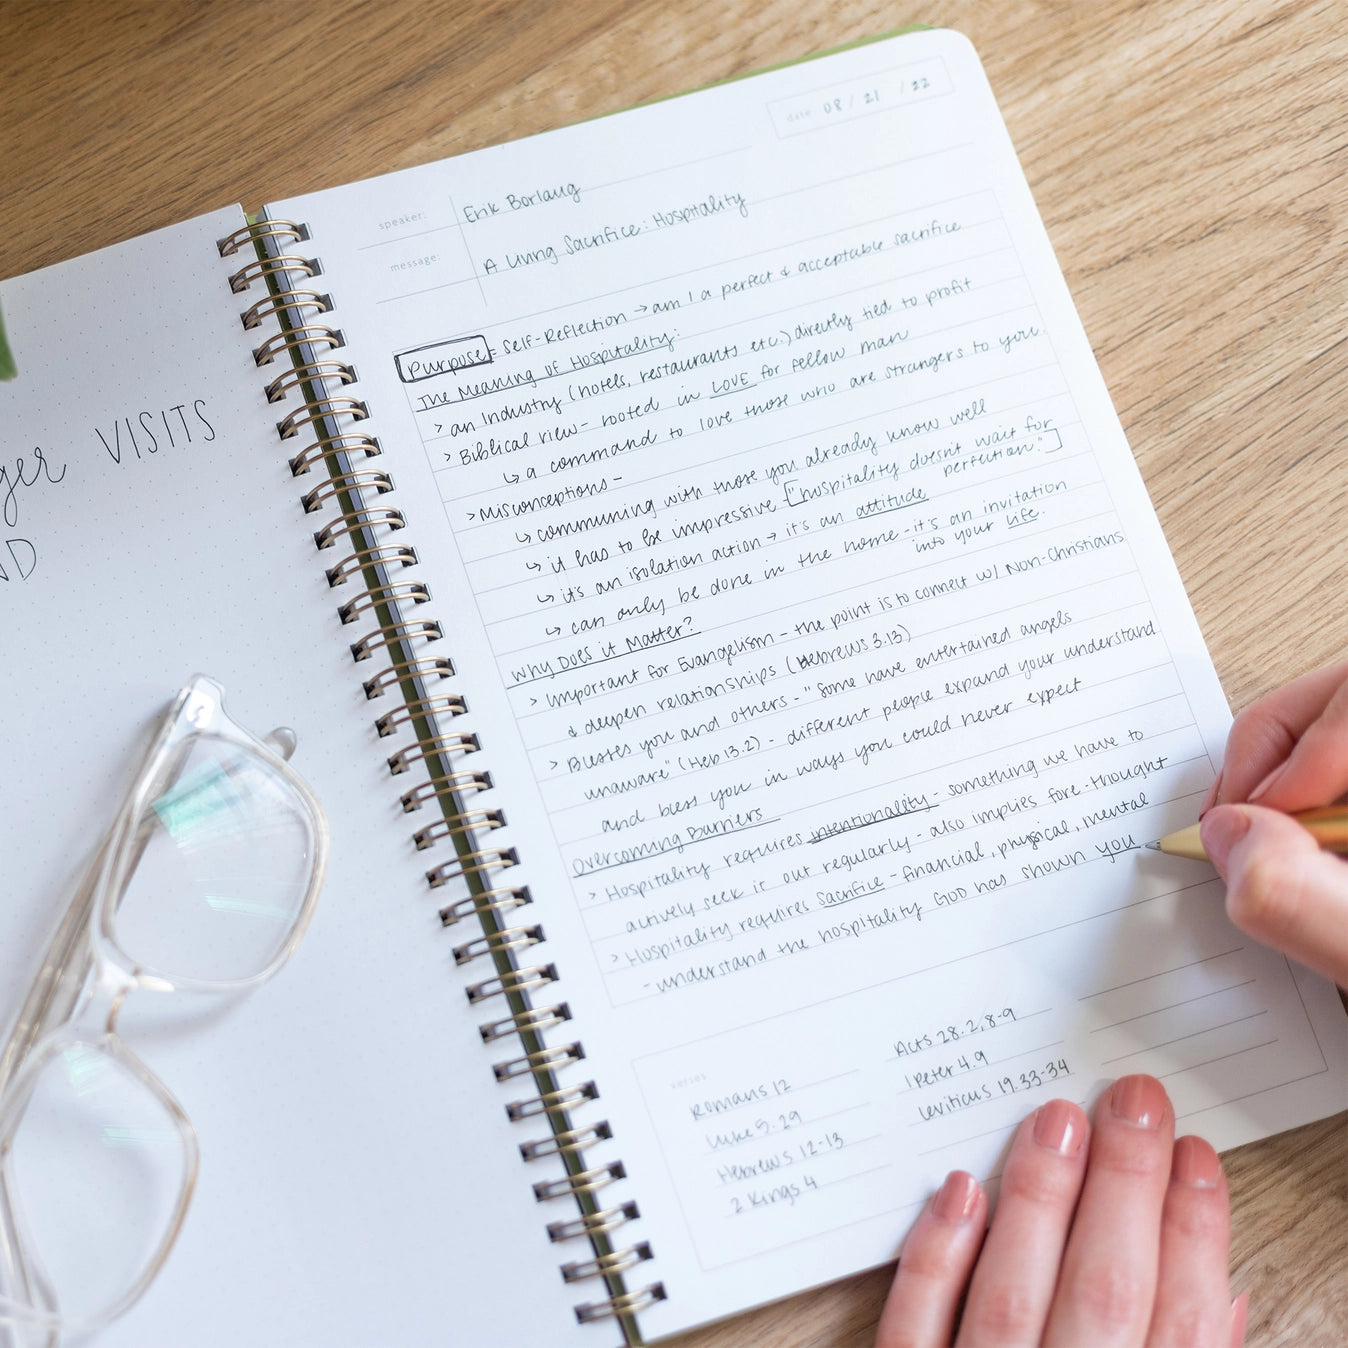 ger VISITS
ND
date 08 / 21 / 22
speaker: Erik Borlaug
message: A Living Sacrifice: Hospitality
Purpose = Self-Reflection → am I a perfect & acceptable sacrifice
The Meaning of Hospitality:
> an Industry (hotels, restaurants etc.) directly tied to profit
> Biblical view - rooted in LOVE for fellow man
↳ a command to love those who are strangers to you.
> Misconceptions -
↳ communing with those you already know well
↳ it has to be impressive ["hospitality doesn't wait for perfection."]
↳ it's an isolation action → it's an attitude
↳ can only be done in the home - it's an invitation into your life.
Why Does it Matter?
> Important for Evangelism - the point is to connect w/ Non-Christians
& deepen relationships (Hebrews 3.13)
> Blesses you and others - "some have entertained angels
unaware" (Heb 13.2) - different people expand your understand
and bless you in ways you could never expect
Overcoming Barriers
> Hospitality requires intentionality - something we have to
actively seek it out regularly - also implies fore-thought
> Hospitality requires Sacrifice - financial, physical, mental
- understand the hospitality GOD has shown you
verses
Romans 12
Luke 5.29
Hebrews 12-13
2 Kings 4
Acts 28.2, 8-9
1 Peter 4.9
Leviticus 19.33-34